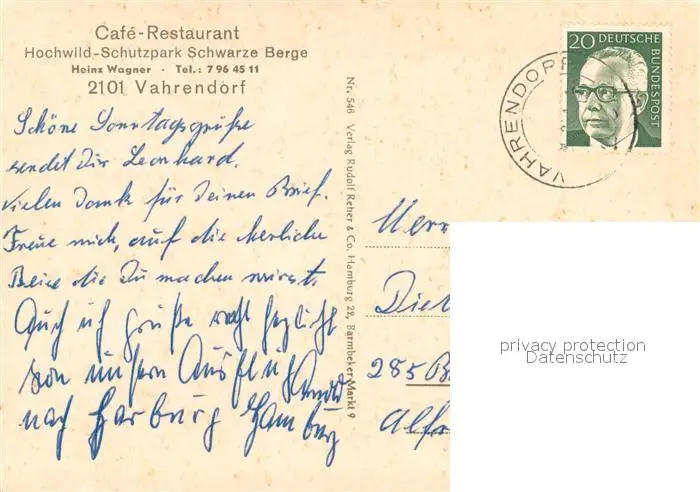 Café-Restaurant
Hochwild-Schutzpark Schwarze Berge
Heinz Wagner · Tel.: 7 96 45 11
2101 Vahrendorf
Schöne Sonntagsgrüße
sendet Dir Leonhard.
Vielen Dank für Deinen Brief.
Freue mich, auf die herliche
Reise die Du machen wirst.
Auch ich grüße recht herzlich
von unsern Ausflug
nach Harburg Hamburg
Nr. 546 Verlag Rudolf Reher & Co. Hamburg 22, Barmbeker Markt 9
20 DEUTSCHE
BUNDESPOST
VAHRENDORF
Herr
Diet
285 B
Alf
privacy protection
Datenschutz